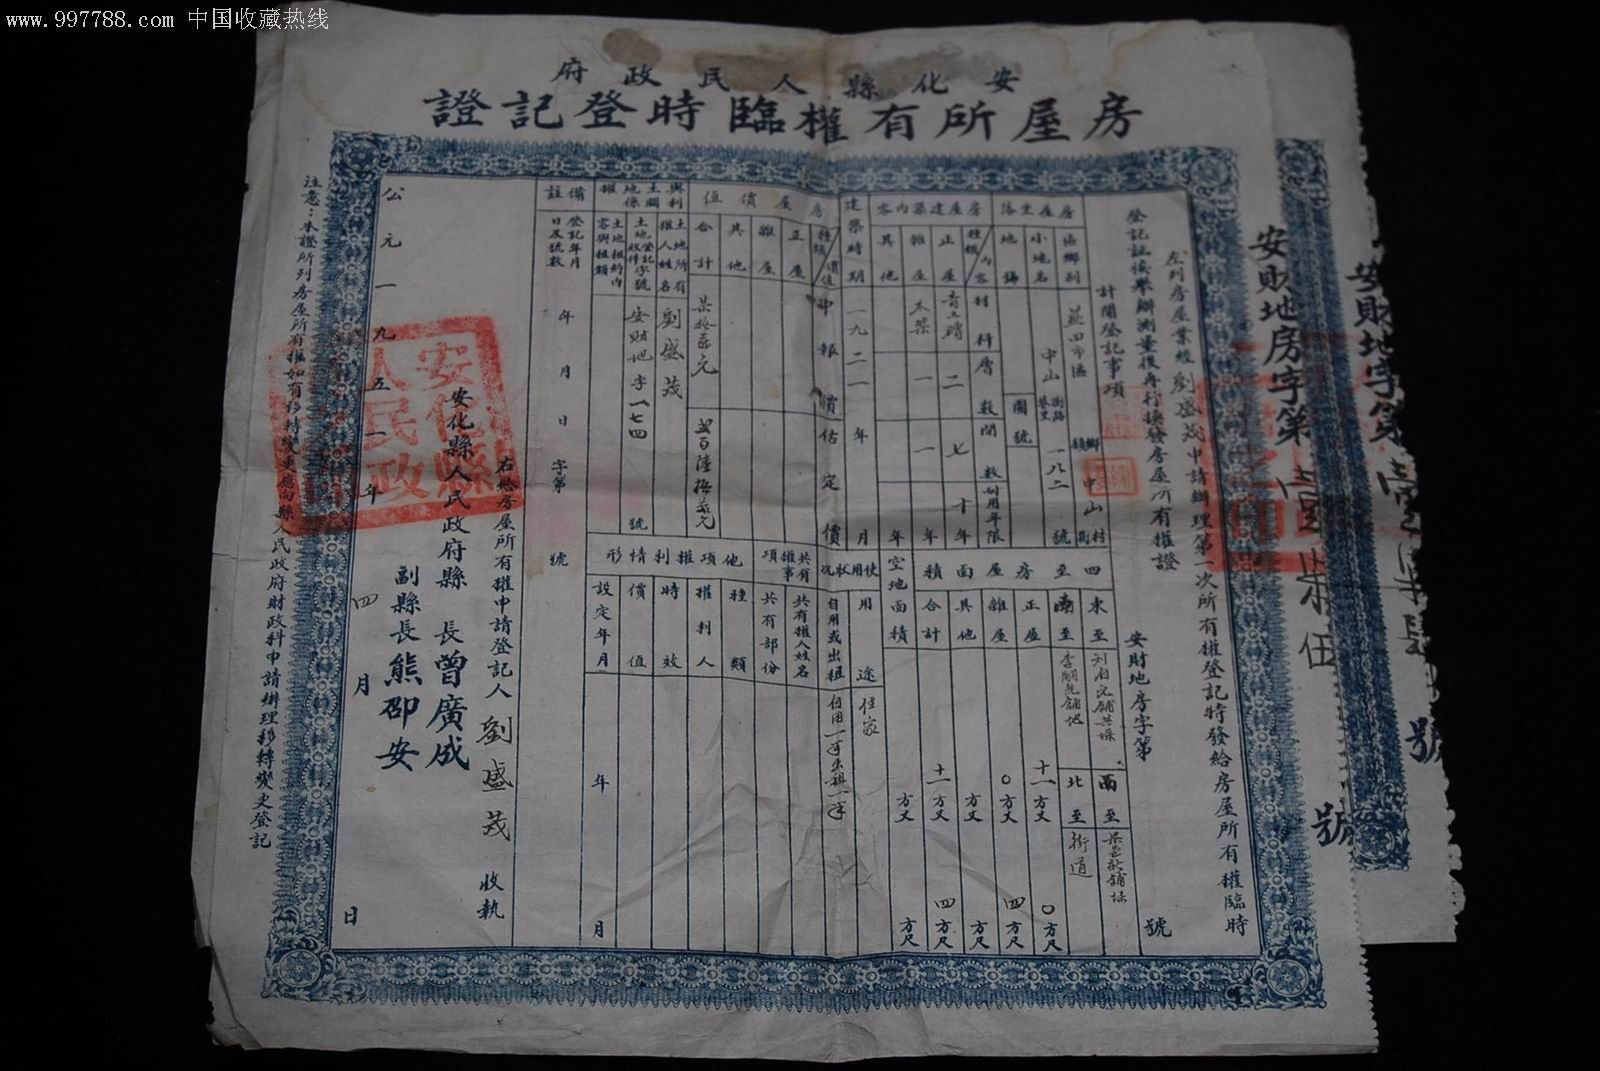 www.997788.com 中国收藏热线
安化縣人民政府
房屋所有權臨時登記證
左列房屋業經劉盛茂申請辦理第一次所有權登記特發給房屋所有權臨時
登記証俟舉辦測量後再行換發房屋所有權證
安財地房字第
號
計開登記事項
房屋坐落
區鄉別
市區
鄉鎮
中山
村街
小地名
中山
街路巷里
一八二
號
地號
圖號
四至
東至
南至
西至
北至
街道
房屋建築內容
種類/內容
材料層數間數耐用年限
正屋
二
七
十年
雜屋
木架
一
一
年
其他
年
房屋面積
正屋
十一方丈
〇方尺
雜屋
〇方丈
四方尺
其他
方丈
方尺
合計
十一方丈
四方尺
空地面積
方丈
方尺
建築時期
一九二一年
月
使用狀況
用途
住家
自用或出租
自用一半出租一半
房屋價值
種類/價值
申報價
估定價
正屋
雜屋
其他
合計
共有權事項
共有權人姓名
共有部份
他項權利情形
種類
權利人
時效
價值
設定年月
年
月
與土地關係
土地所有權人姓名
劉盛茂
土地登記收件字號
安財地字一七四
號
土地租約內容與租額
備註
登記年月日及號數
年
月
日
字第
號
右給房屋所有權申請登記人劉盛茂
收執
安化縣人民政府縣
長曾廣成
副縣長熊邵安
公元一九五一年
四月
日
注意：本證所列房屋所有權如有移轉變更應向縣人民政府財政科申請辦理移轉變更登記
安財地房字第
壹柒伍
號
安財地字第
號
安化縣人民政